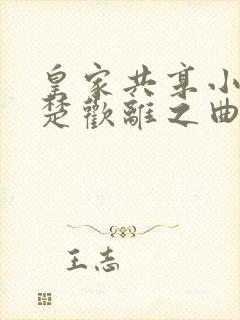 皇家共享小
楚歡離之曲
王志